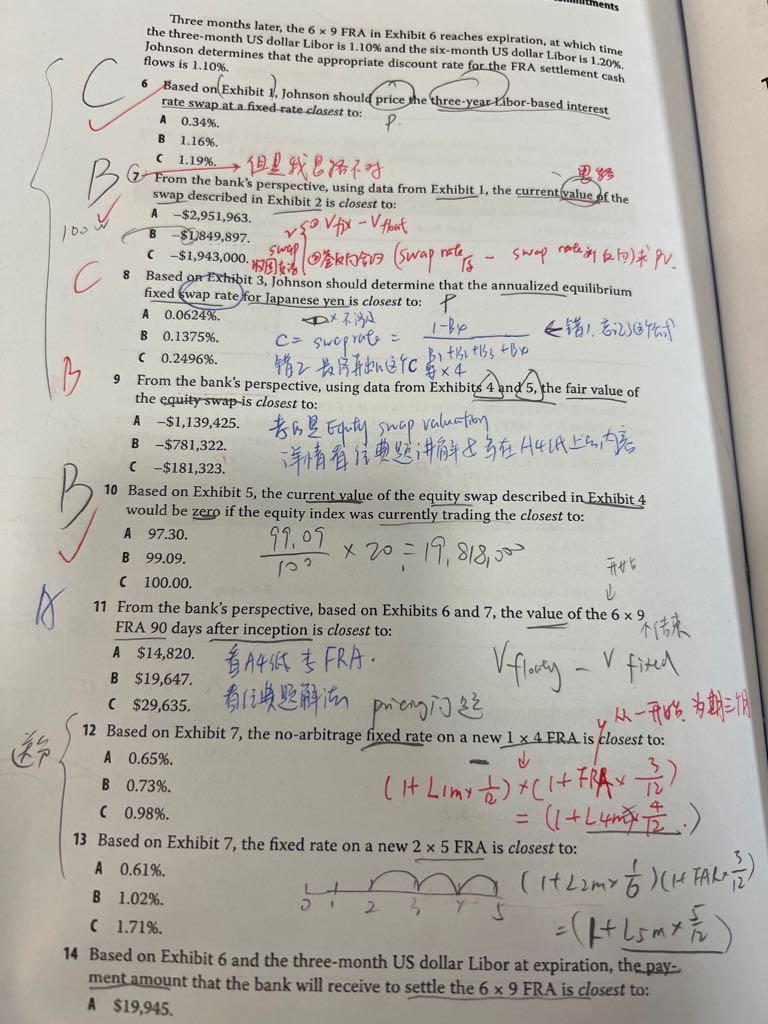 Three months later, the 6 × 9 FRA in Exhibit 6 reaches expiration, at which time
the three-month US dollar Libor is 1.10% and the six-month US dollar Libor is 1.20%.
Johnson determines that the appropriate discount rate for the FRA settlement cash
flows is 1.10%.
C
6 Based on Exhibit 1, Johnson should price the three-year Libor-based interest
rate swap at a fixed rate closest to:
P.
A 0.34%.
B 1.16%.
C 1.19%.
但是我思路不对
思路
B
7 From the bank's perspective, using data from Exhibit 1, the current value of the
swap described in Exhibit 2 is closest to:
A −$2,951,963.
B −$1,849,897.
C −$1,943,000.
100W
① Vfix − Vfloat
swap
(swap rate − swap rate) PV.
C
8 Based on Exhibit 3, Johnson should determine that the annualized equilibrium
fixed swap rate for Japanese yen is closest to:
P
A 0.0624%.
B 0.1375%.
C 0.2496%.
C = swap rate = 1−B4 / B1+B2+B3+B4
错1.忘记了这个公式
错2 最后算出的这个C 要×4
B
9 From the bank's perspective, using data from Exhibits 4 and 5, the fair value of
the equity swap is closest to:
A −$1,139,425.
B −$781,322.
C −$181,323.
考的是 Equity swap valuation
详情看经典题讲解& 写在A4纸上的内容
B
10 Based on Exhibit 5, the current value of the equity swap described in Exhibit 4
would be zero if the equity index was currently trading the closest to:
A 97.30.
B 99.09.
C 100.00.
99.09 / 100 × 20 = 19,818,000
开始
A
11 From the bank's perspective, based on Exhibits 6 and 7, the value of the 6 × 9
FRA 90 days after inception is closest to:
A $14,820.
B $19,647.
C $29,635.
看A4纸 李 FRA.
看经典题解法
V floating − V fixed
pricing 问题
从一开始,为期三个月
12 Based on Exhibit 7, the no-arbitrage fixed rate on a new 1 × 4 FRA is closest to:
A 0.65%.
B 0.73%.
C 0.98%.
(1+ L1m × 1/12) × (1+ FRA × 3/12)
= (1+ L4m × 4/12)
13 Based on Exhibit 7, the fixed rate on a new 2 × 5 FRA is closest to:
A 0.61%.
B 1.02%.
C 1.71%.
0 1 2 3 4 5
(1+ L2m × 1/6)(1+ FAR × 3/12)
= (1+ L5m × 5/12)
14 Based on Exhibit 6 and the three-month US dollar Libor at expiration, the pay-
ment amount that the bank will receive to settle the 6 × 9 FRA is closest to:
A $19,945.